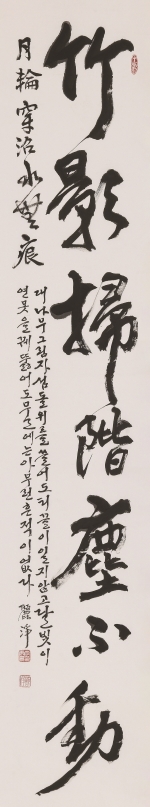 竹影掃階塵不動
月輪穿沼水無痕
대나무 그림자 섬돌 위를 쓸어도 티끌이 일지 않고 달빛이
연못을 꿰뚫어도 물 위에는 아무런 흔적이 없다